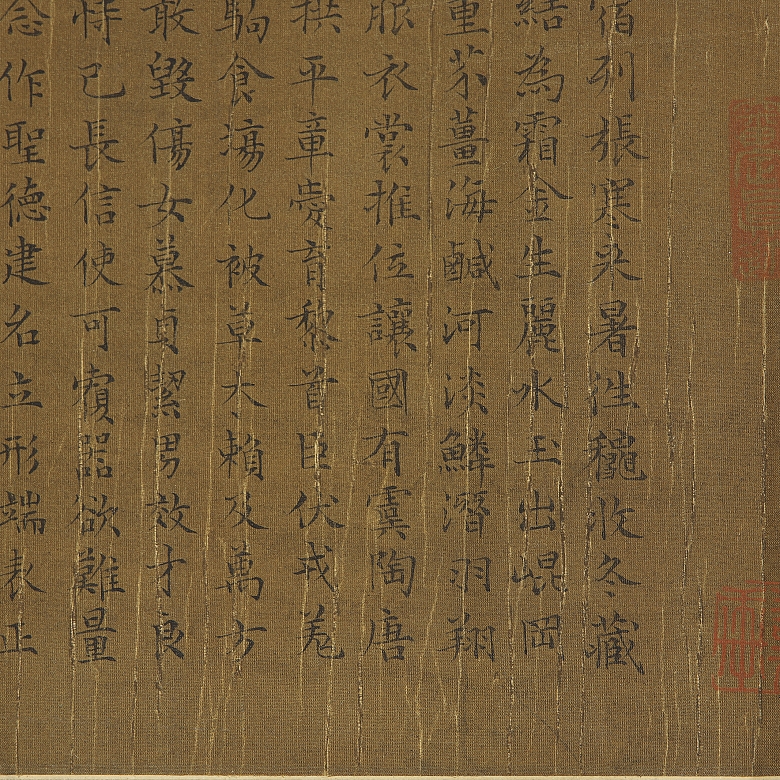 宿列張寒来暑往穐收冬藏
結為霜金生麗水玉出崐岡
重芥薑海鹹河淡鱗潛羽翔
服衣裳推位讓國有虞陶唐
平章愛育黎首臣伏戎羌
駒食場化被草木賴及萬方
敢毀傷女慕貞絜男效才良
恃己長信使可覆器欲難量
念作聖德建名立形端表正